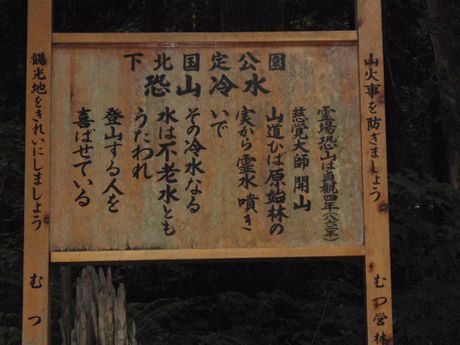 下北国定公園
恐山冷水
山火事を防ぎましょう
むつ営林
霊場恐山は貞観四年(八六二年)
慈覚大師 開山
山道ひば原始林の
実から霊水噴き
いで
その冷水なる
水は不老水とも
うたわれ
登山する人を
喜ばせている
観光地をきれいにしましょう
むつ